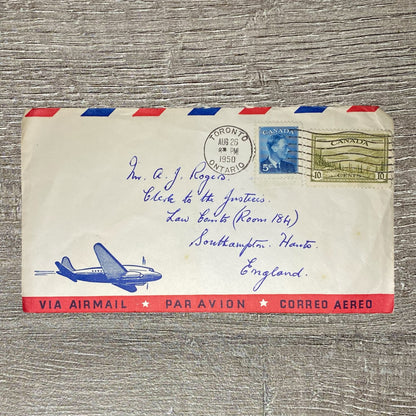 TORONTO
AUG 26
PM
1950
ONTARIO
CANADA
5
CANADA
10 CENTS 10
Mr. A. J. Rogers.
Clerk to the Justices.
Law Courts (Room 184)
Southampton. Hants.
England.
VIA AIRMAIL ★ PAR AVION ★ CORREO AEREO